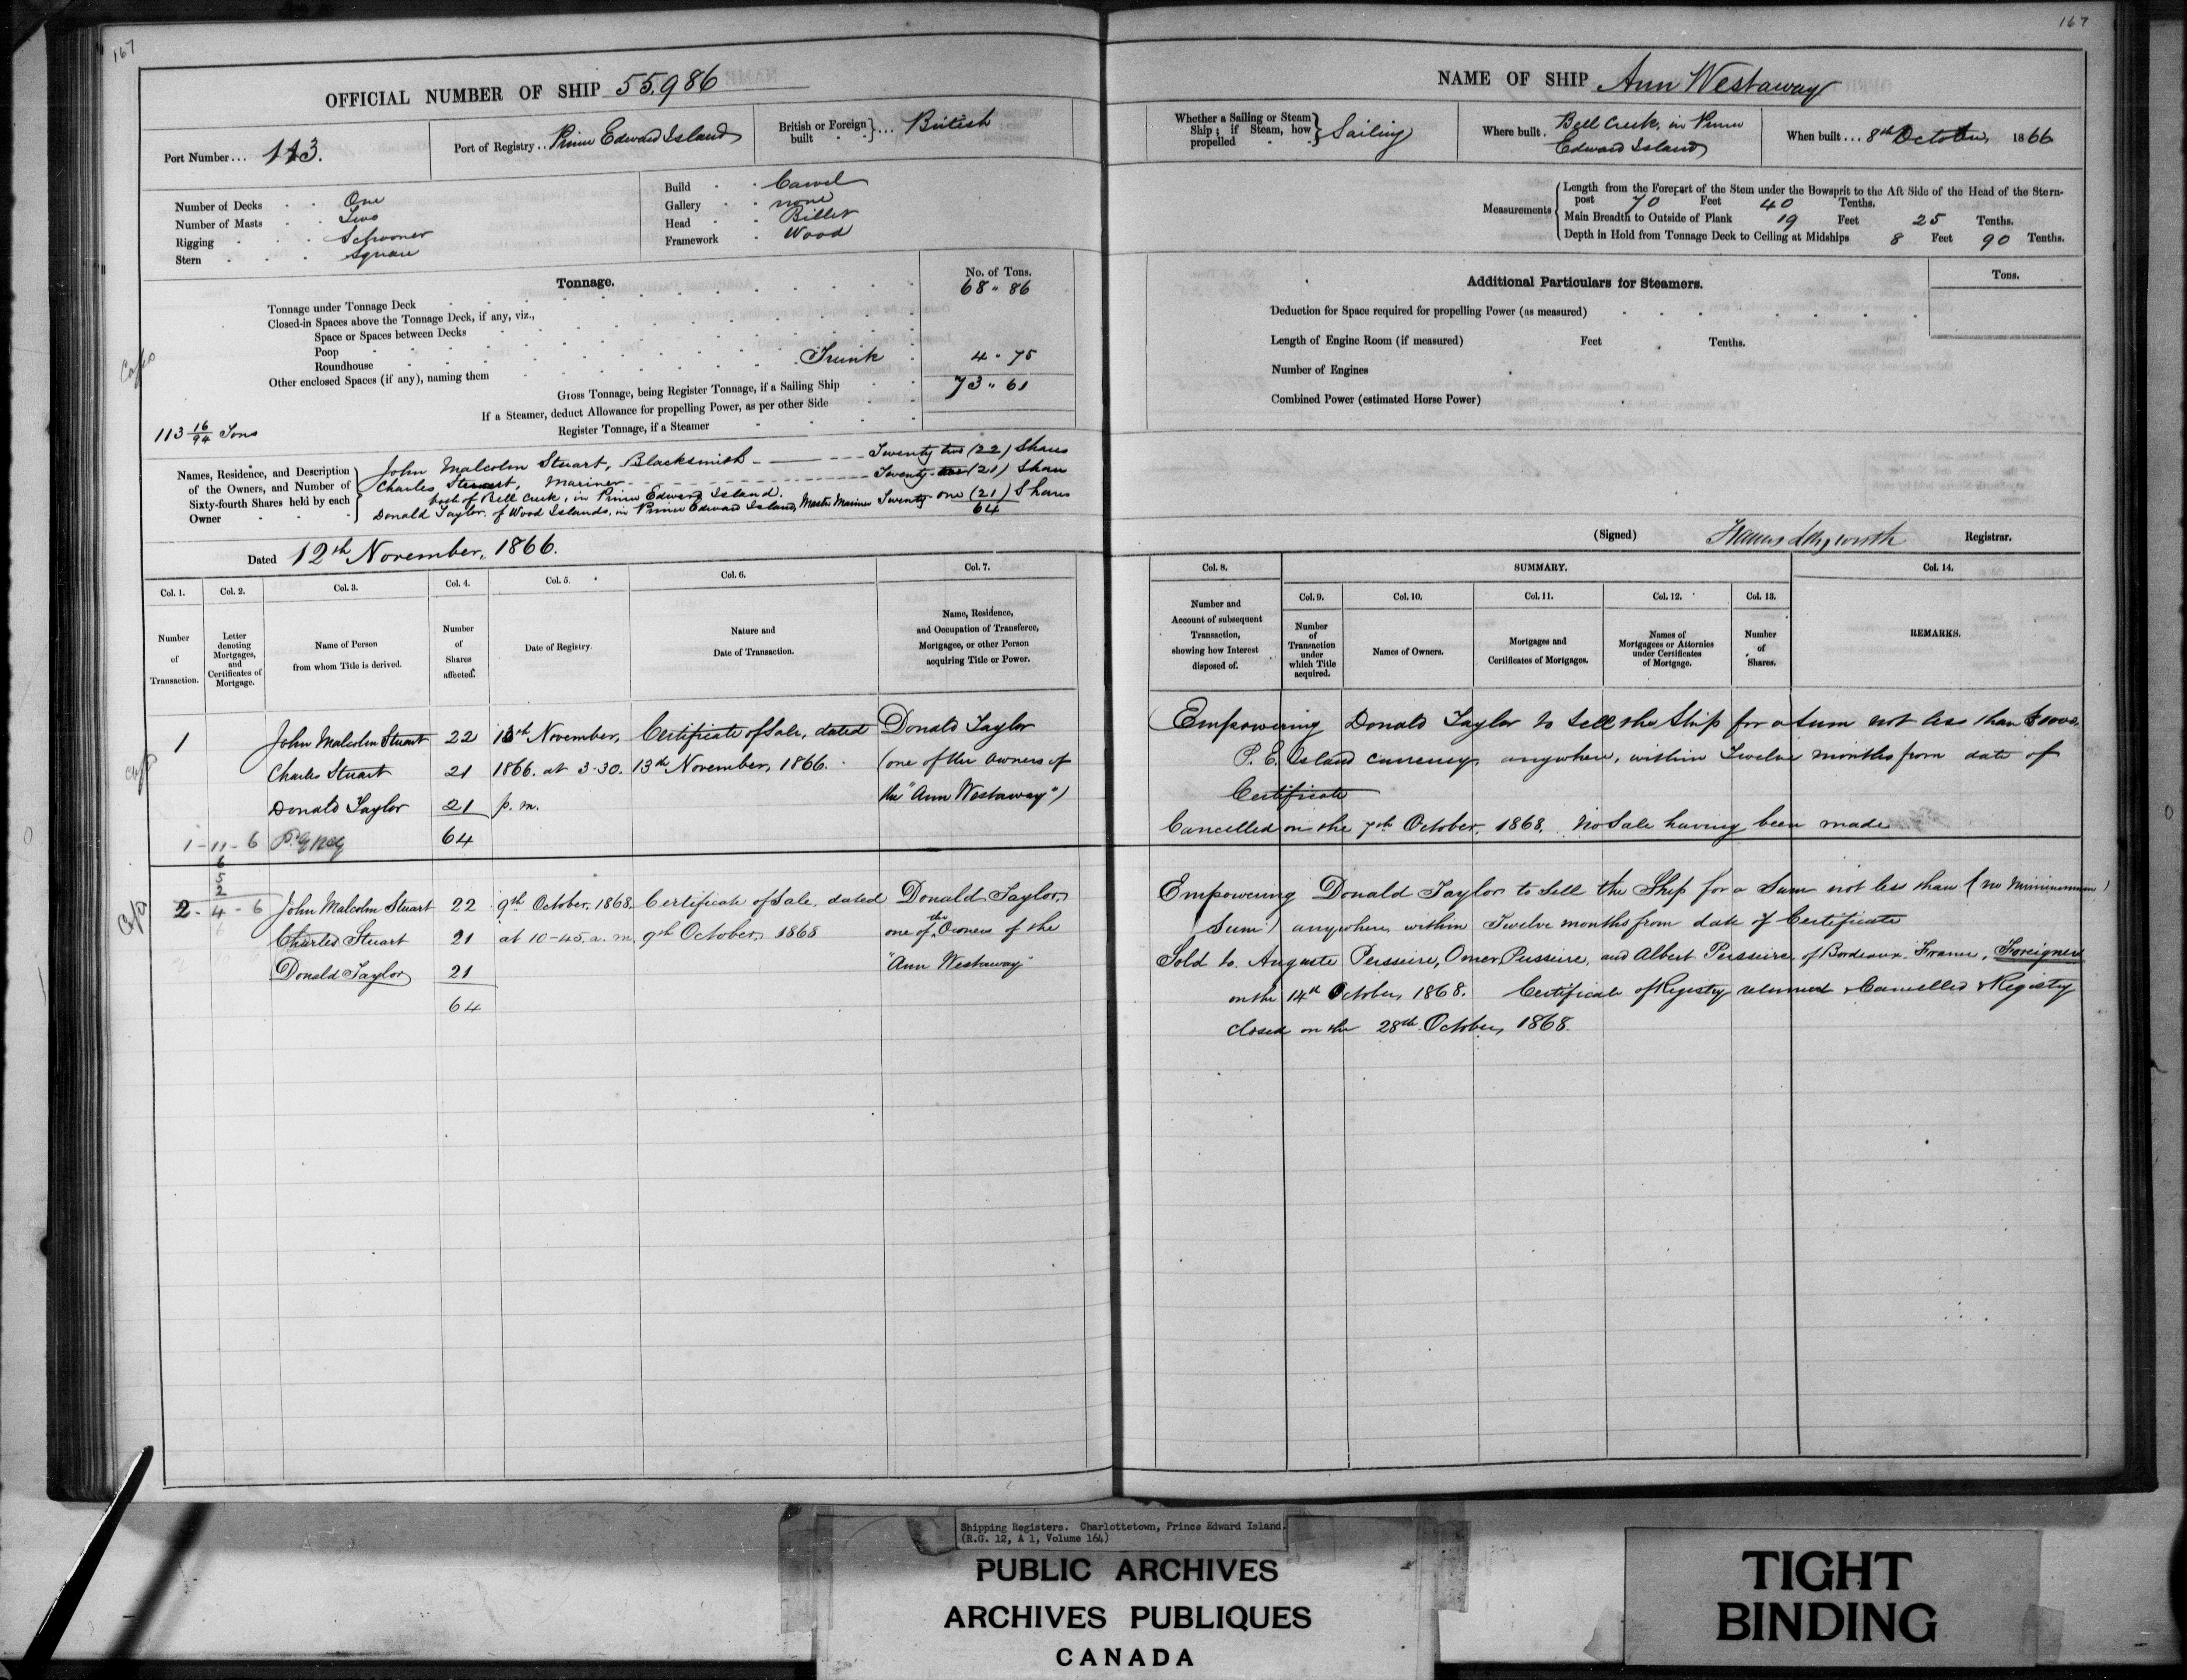 167
OFFICIAL NUMBER OF SHIP 55,986
Port Number... 113.
Port of Registry.. Prince Edward Island
British or Foreign built }... British
Number of Decks One
Number of Masts Two
Rigging Schooner
Stern Square
Build Carvel
Gallery none
Head Billet
Framework Wood
Tonnage.
No. of Tons.
Tonnage under Tonnage Deck 68 " 86
Closed-in Spaces above the Tonnage Deck, if any, viz.,
Space or Spaces between Decks
Poop
Roundhouse
Other enclosed Spaces (if any), naming them Trunk 4 " 75
Gross Tonnage, being Register Tonnage, if a Sailing Ship 73 " 61
If a Steamer, deduct Allowance for propelling Power, as per other Side
Register Tonnage, if a Steamer
113 16/94 Tons
Names, Residence, and Description of the Owners, and Number of Sixty-fourth Shares held by each Owner
John Malcolm Stuart, Blacksmith - Twenty two (22) Shares
Charles Stuart, Mariner Twenty (21) Share
both of Bell Creek, in Prince Edward Island.
Donald Taylor of Wood Islands, in Prince Edward Island, Master Mariner Twenty-one (21) Shares
64
Dated 12th November, 1866.
Col. 1. Col. 2. Col. 3. Col. 4. Col. 5. Col. 6. Col. 7.
Number of Transaction.
Letter denoting Mortgages, and Certificates of Mortgage.
Name of Person from whom Title is derived.
Number of Shares affected.
Date of Registry.
Nature and Date of Transaction.
Name, Residence, and Occupation of Transferee, Mortgagee, or other Person acquiring Title or Power.
1 John Malcolm Stuart 22 13th November, Certificate of Sale, dated Donald Taylor
Charles Stuart 21 1866. at 3-30. 13th November, 1866. (one of the owners of
Donald Taylor 21 p. m. the "Ann Westaway")
1-11-6 64
6
5
2
2-4-6 John Malcolm Stuart 22 9th October, 1868, Certificate of Sale, dated Donald Taylor,
Charles Stuart 21 at 10-45. a. m. 9th October, 1868 one of the Owners of the
Donald Taylor 21 "Ann Westaway"
64
167
NAME OF SHIP Ann Westaway
Whether a Sailing or Steam Ship; if Steam, how propelled } Sailing
Where built. Bell Creek, in Prince
Edward Island
When built... 8th October, 1866
Measurements
Length from the Forepart of the Stem under the Bowsprit to the Aft Side of the Head of the Stern-
post 70 Feet 40 Tenths.
Main Breadth to Outside of Plank 19 Feet 25 Tenths.
Depth in Hold from Tonnage Deck to Ceiling at Midships 8 Feet 90 Tenths.
Additional Particulars for Steamers.
Tons.
Deduction for Space required for propelling Power (as measured)
Length of Engine Room (if measured) Feet Tenths.
Number of Engines
Combined Power (estimated Horse Power)
(Signed) Registrar.
Col. 8. SUMMARY. Col. 14.
Col. 9. Col. 10. Col. 11. Col. 12. Col. 13.
Number and Account of subsequent Transaction, showing how Interest disposed of.
Number of Transaction under which Title acquired.
Names of Owners.
Mortgages and Certificates of Mortgages.
Names of Mortgagees or Attornies under Certificates of Mortgage.
Number of Shares.
REMARKS.
Empowering Donald Taylor to sell the Ship for a sum not less than
P. E. Island currency, anywhere, within Twelve months from date of
Certificate
Cancelled on the 7th October, 1868. No Sale having been made
Empowering Donald Taylor to sell the Ship for a sum not less than (no minimum
Sum) anywhere within Twelve months from date of Certificate
Sold to Auguste Persseire, Omer Persseire, and Albert Persseire, of Bordeaux, France, Foreigners
on the 14th October, 1868. Certificate of Registry returned & Cancelled & Registry
closed on the 28th October, 1868.
Shipping Registers. Charlottetown, Prince Edward Island.
(R.G. 12, A 1, Volume 164)
PUBLIC ARCHIVES
ARCHIVES PUBLIQUES
CANADA
TIGHT
BINDING